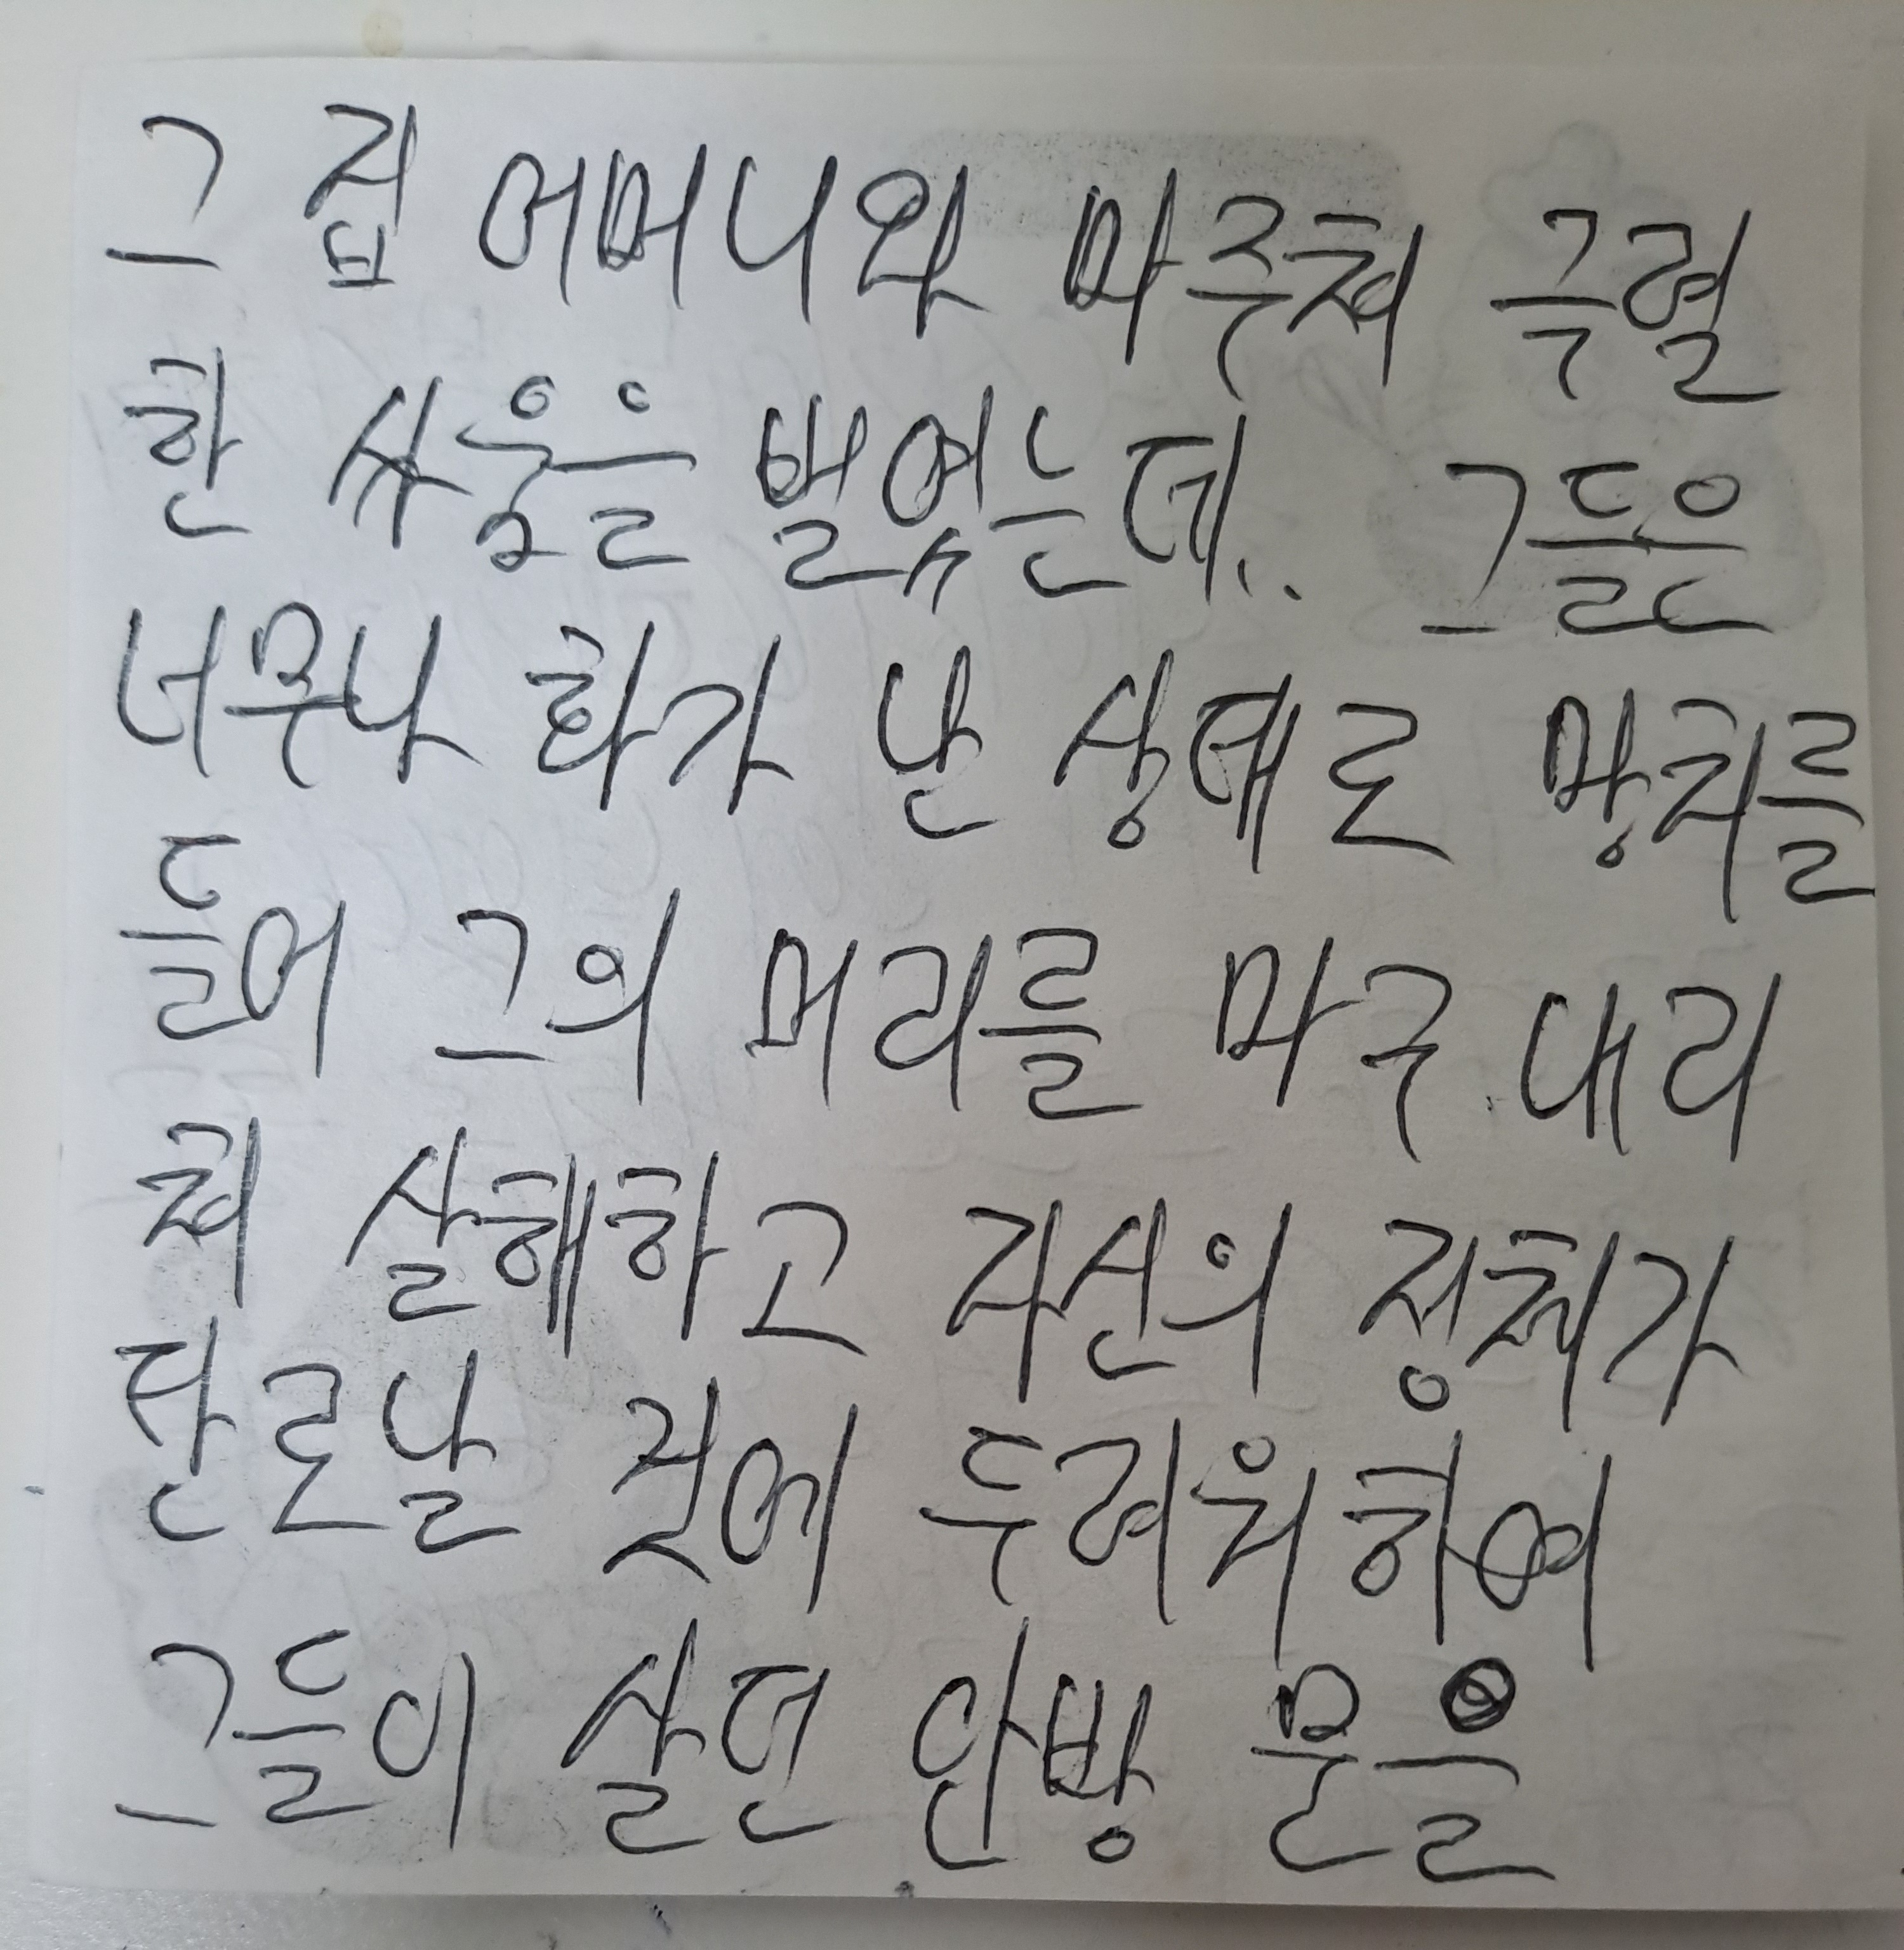 그 집 어머니와 마주쳐 극렬
한 싸움을 벌였는데.. 그들은
너무나 화가 난 상태로 망치를
들어 그의 머리를 마구 내리
쳐 살해하고 자신의 정체가
탄로날 것에 두려워하여
그들이 살던 안방 문을